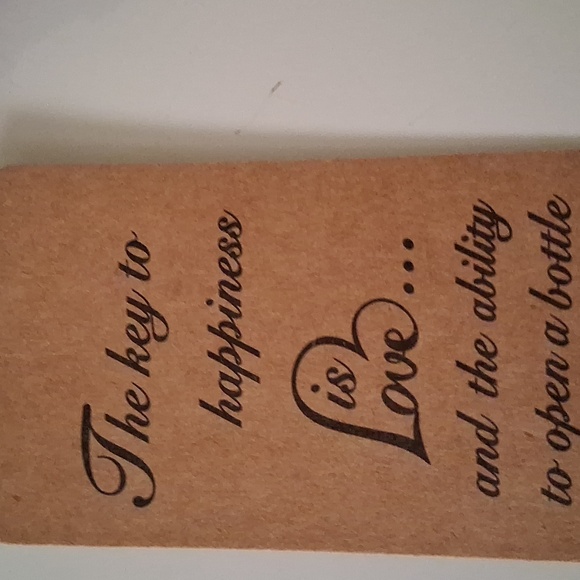 The key to
happiness
is
Love...
and the ability
to open a bottle